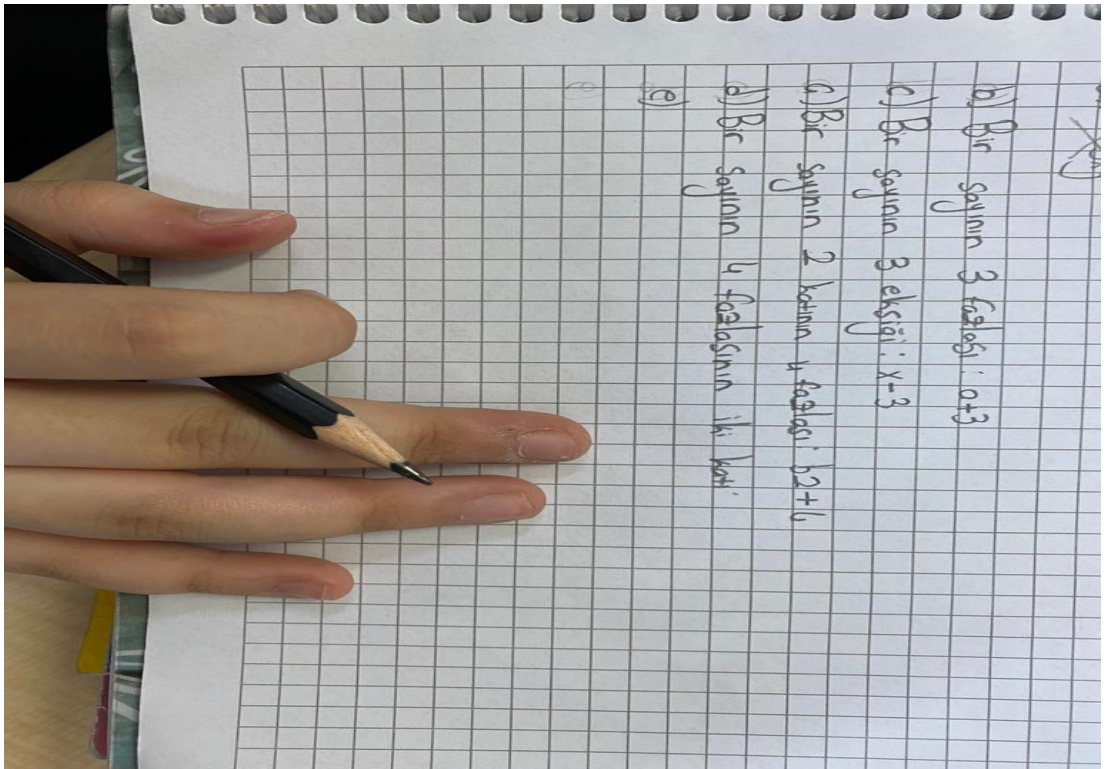 b) Bir sayının 3 fazlası: a+3
c) Bir sayının 3 eksiği: x-3
ç) Bir sayının 2 katının 4 fazlası: b2+4
d) Bir sayının 4 fazlasının iki katı
e)